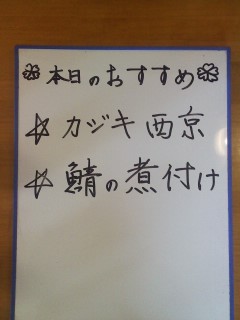 本日のおすすめ
☆カジキ西京
☆鯖の煮付け